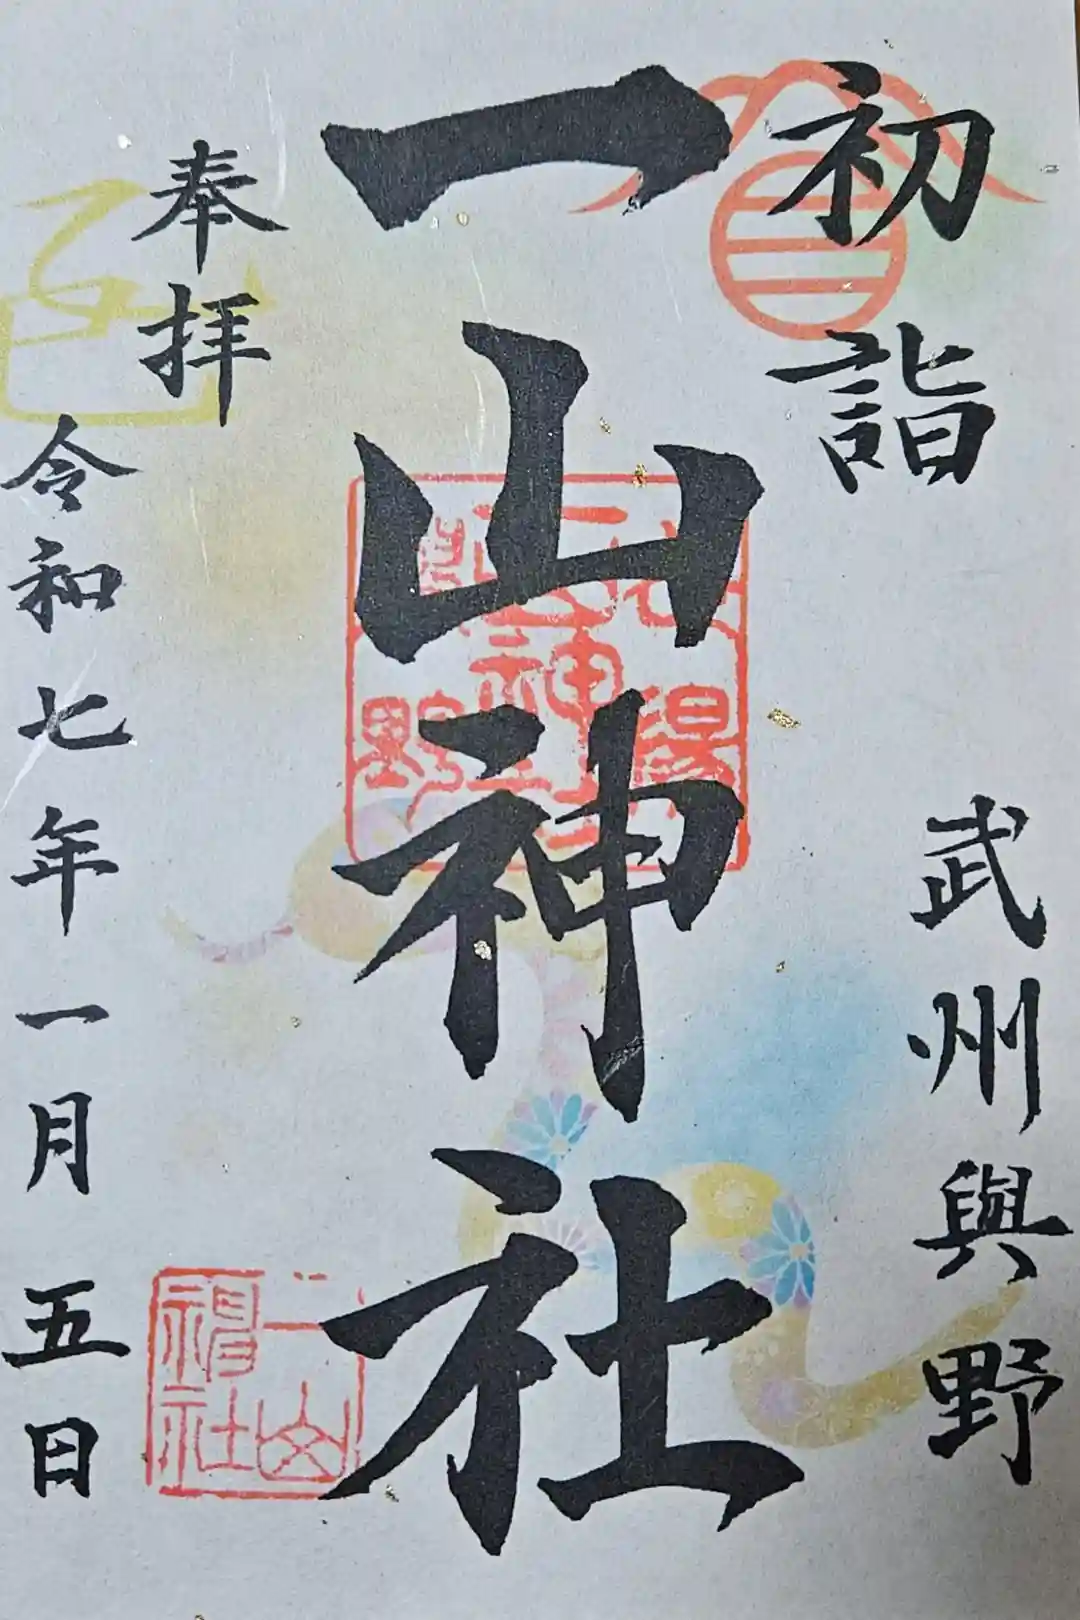 初詣
武州與野
一山神社
奉拝
令和七年一月五日
巳
一山
神社